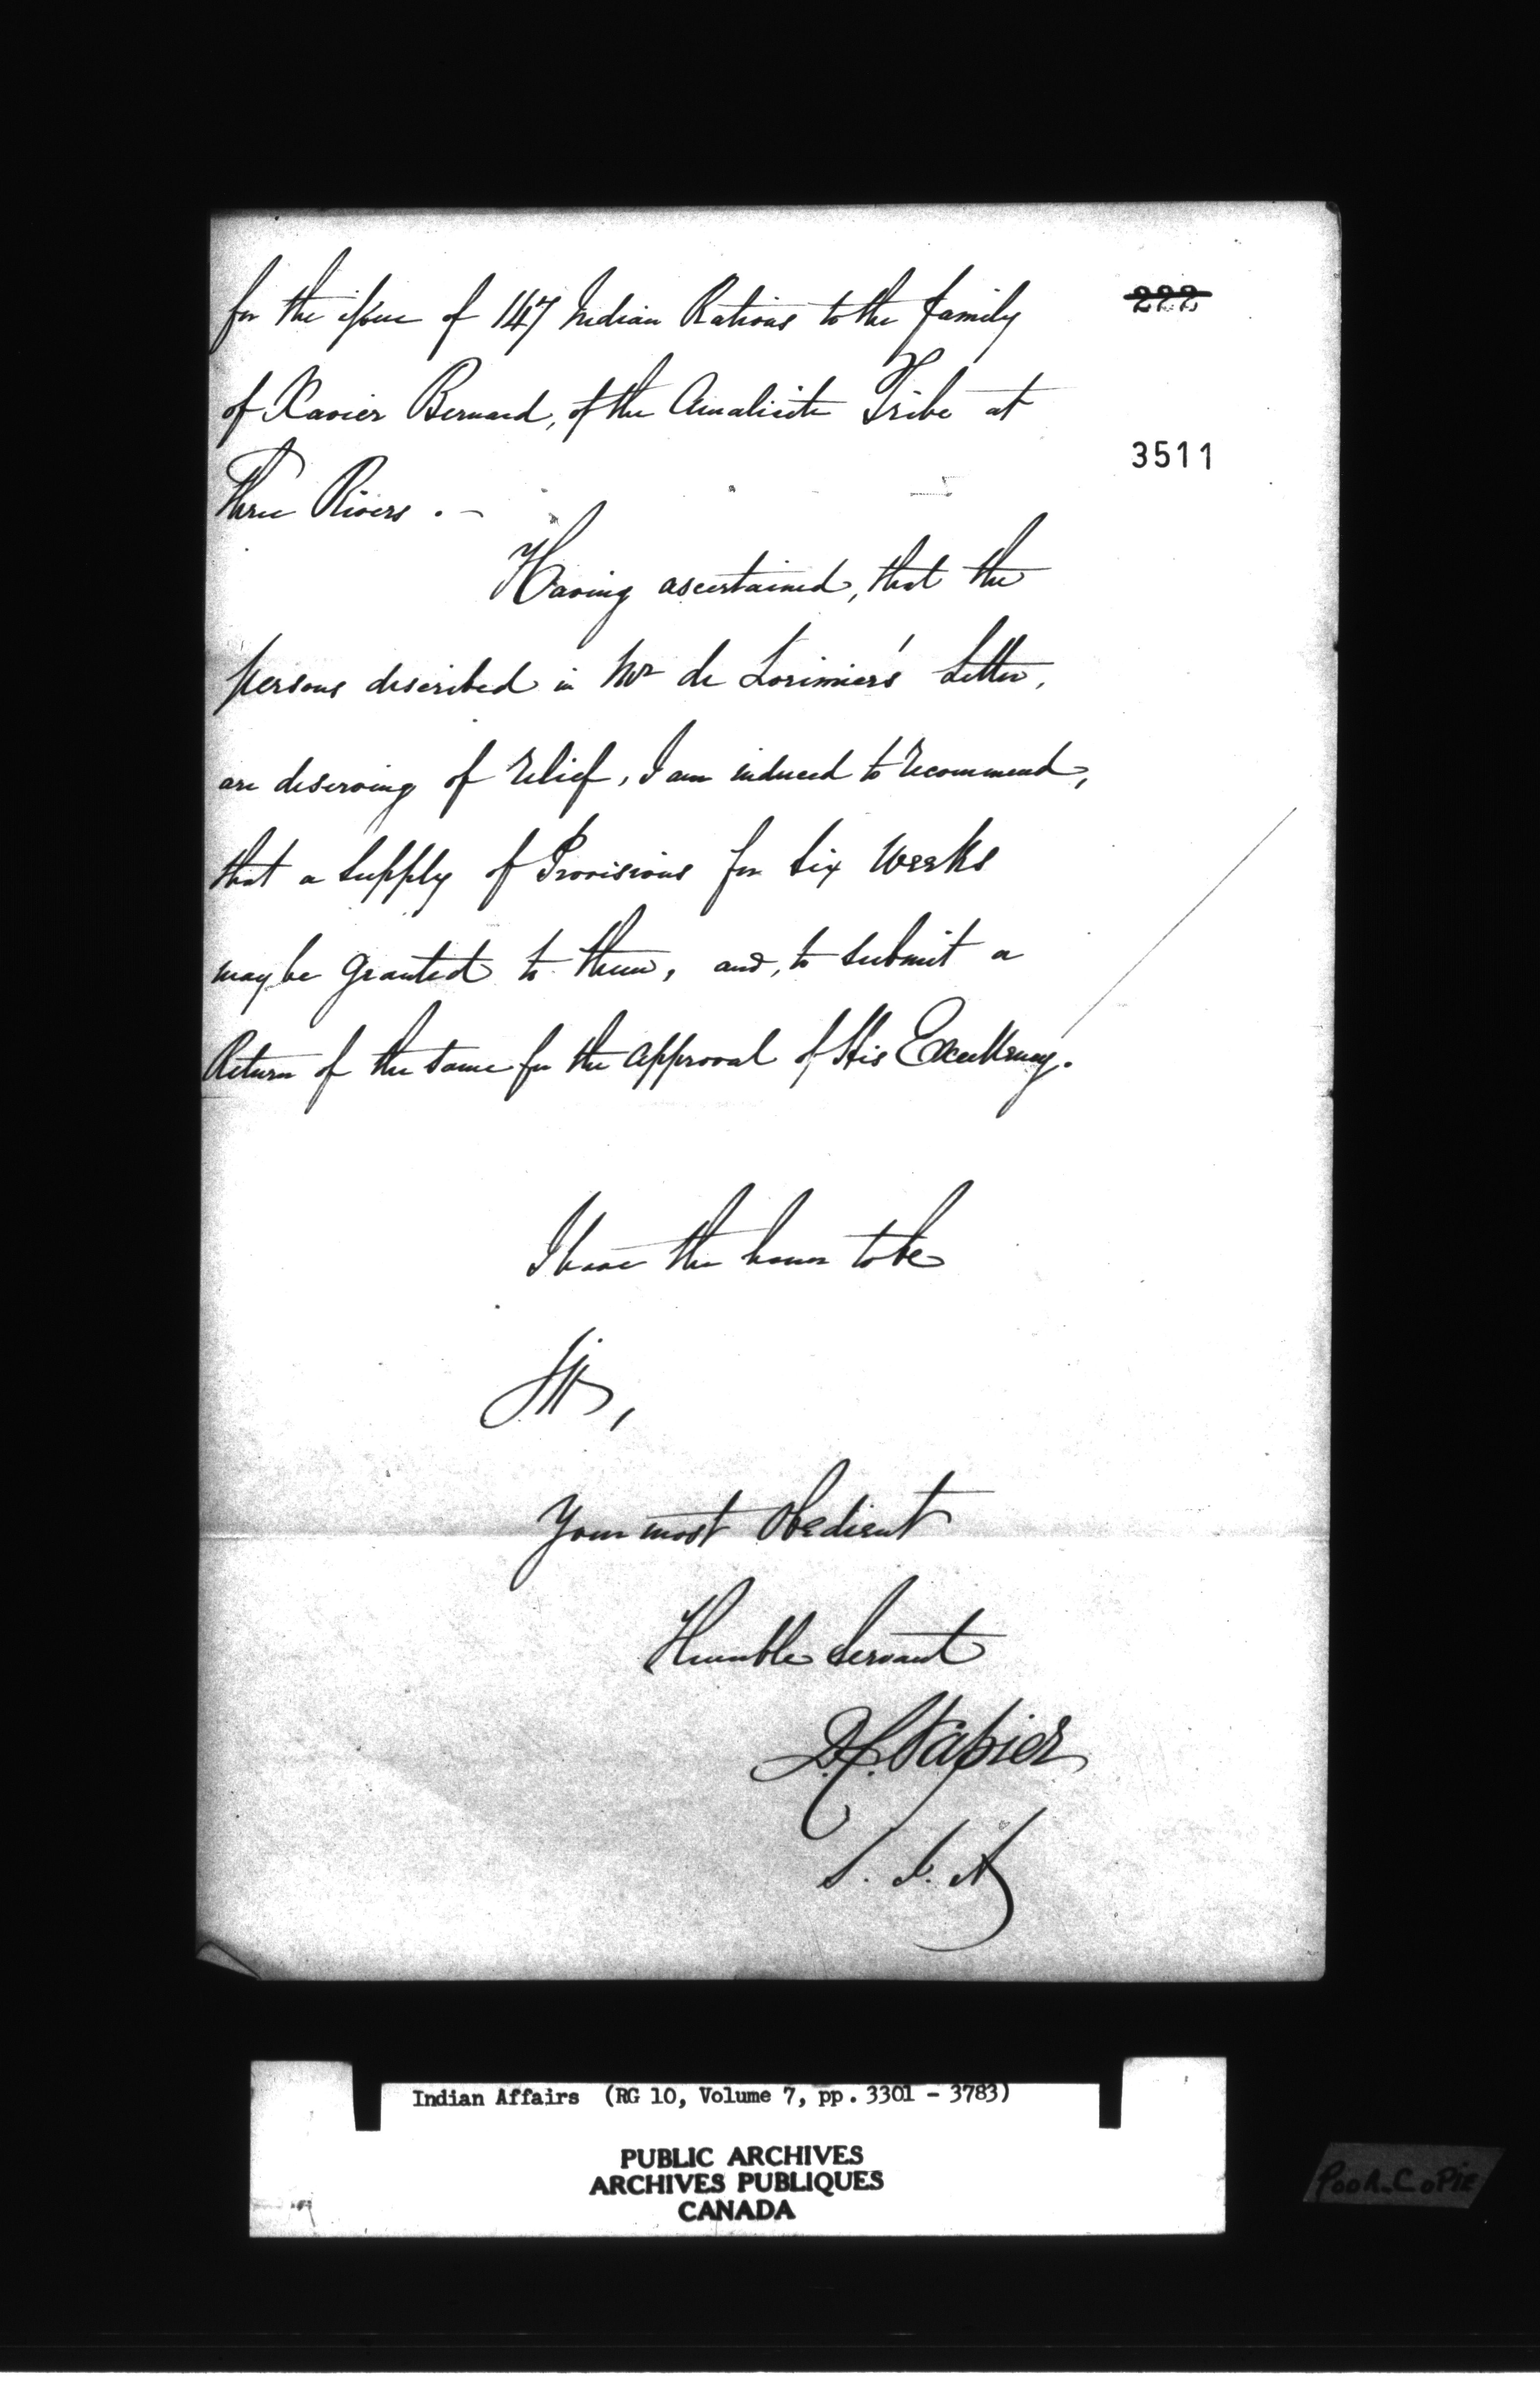 for the issue of 147 Indian Rations to the family
222
of Xavier Bernard, of the Amalicite Tribe at
3511
Three Rivers . -
Having ascertained, that the
persons described in Mr de Lorimier's Letter,
are deserving of relief, I am induced to recommend,
that a Supply of Provisions for Six Weeks
may be granted to them, and, to submit a
Return of the same for the approval of His Excellency.
I have the honor to be
Sir,
Your most Obedient
Humble Servant
D.C. Napier
S. I. A
Indian Affairs (RG 10, Volume 7, pp. 3301 - 3783)
PUBLIC ARCHIVES
ARCHIVES PUBLIQUES
CANADA
POOR COPIE